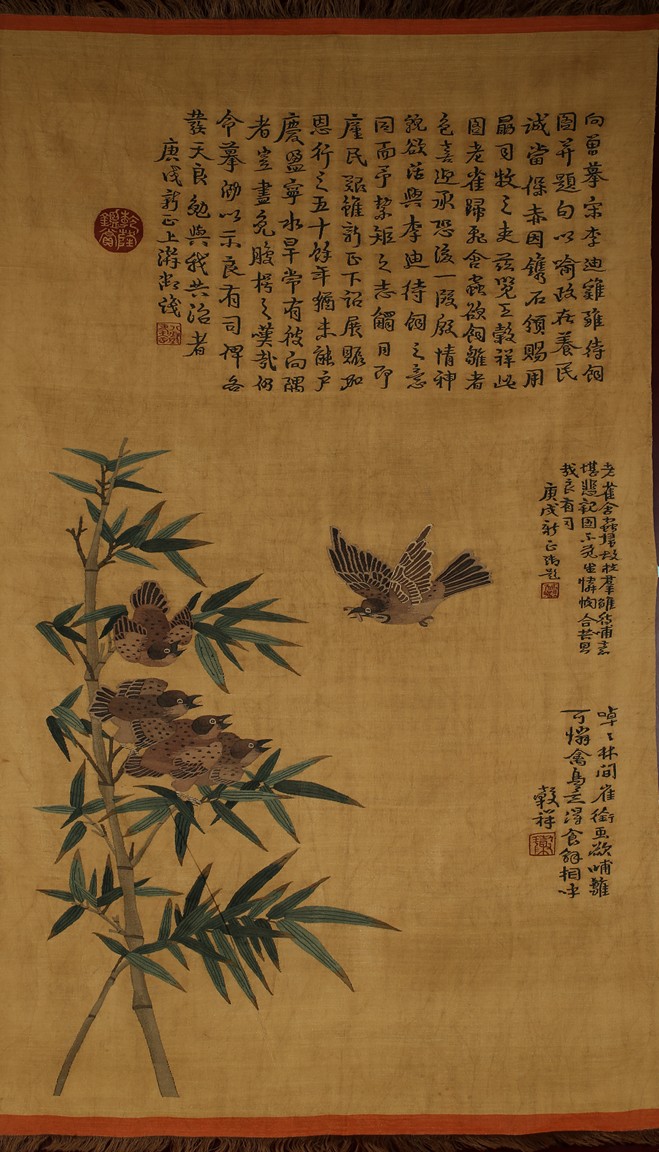 向曾摹宋李迪雞雛待飼
圖并題句以喻政在養民
誠當保赤因鐫石頒賜用
勗司牧之吏茲覽王穀祥此
圖老雀歸飛含蟲欲飼雛者
色喜迎承恐後一段殷情神
貌欲活與李迪待飼之意
同而予絜矩之志觸目即
廑民艱雖新正下詔展賑加
恩行之五十餘年猶未能戶
慶盈寧水旱常有彼向隅
者豈盡免腹枵之嘆哉仍
令摹泐以示良有司俾各
發天良勉與我共治者
庚戌新正上澣御識
乾隆鑑賞
老雀含蟲歸故枝羣雛待哺意
堪悲觀圖不覺生憐憫合共勗
哉良有司
庚戌新正御題
啅〻林間雀銜虫欲哺雛
可憐禽鳥志得食解相呼
穀祥